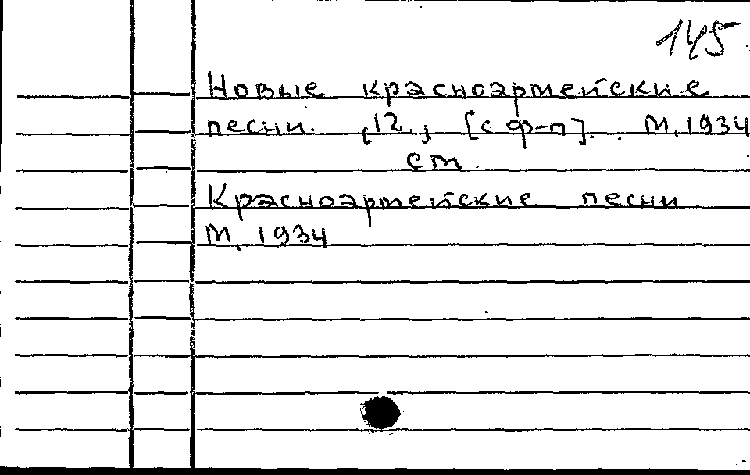 145.
Новые красноармейские
песни. [12], [с ф-п]. М. 1934
см.
Красноармейские песни
М. 1934